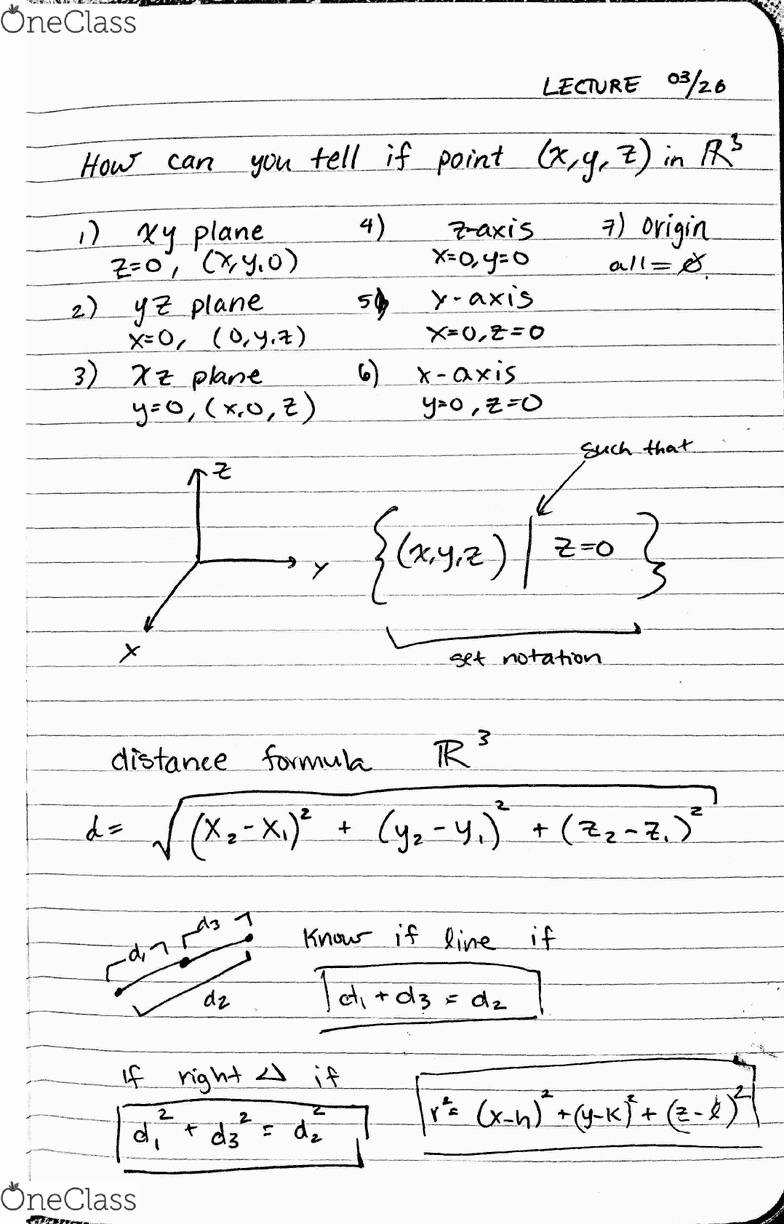 OneClass
LECTURE 03/26
How can you tell if point (x, y, z) in ℝ³
1) xy plane 4) z-axis 7) Origin
z=0, (x,y,0) x=0, y=0 all = 0.
2) yz plane 5) y-axis
x=0, (0,y,z) x=0, z=0
3) xz plane 6) x-axis
y=0, (x,0,z) y=0, z=0
such that
z
{(x,y,z) | z=0}
y
x
set notation
distance formula ℝ³
d = √((x₂-x₁)² + (y₂-y₁)² + (z₂-z₁)²)
d₁ d₃ Know if line if
d₂ d₁ + d₃ = d₂
If right △ if
d₁² + d₃² = d₂² r² = (x-h)² + (y-k)² + (z-l)²
OneClass